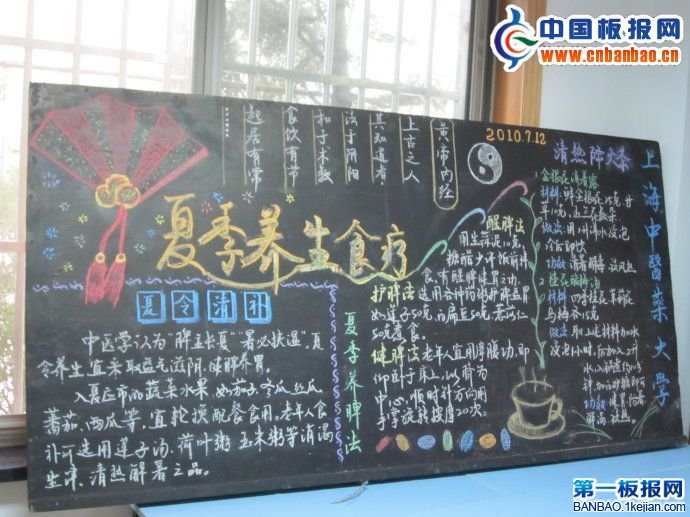 中国板报网
www.cnbanbao.cn
2010.7.12
黄帝内经
上古之人
其知道者
法于阴阳
和于术数
食饮有节
起居有常
夏季养生食疗
夏令清补
中医学认为“脾主长夏”“暑必挟湿”,夏
令养生宜采取益气滋阴,健脾养胃。
入夏应市的蔬菜水果如茄子冬瓜丝瓜
番茄、西瓜等,宜轮换配餐食用。老年人食
补可选用莲子汤、荷叶粥玉米粥等消渴
生津、清热解暑之品。
夏季养脾法
醒脾法
用生蒜泥10克,
糖醋少许饭前拌
食,有醒脾健胃功.
护脾法 选用各种药粥护脾益胃
如莲子50克,白扁豆50克,薏米仁
50克煮食.
健脾法 老年人宜用摩腹功,即
仰卧于床上,以脐为
中心,顺时针方向用
手掌旋转按摩20次.
清热降火茶
1 金银花消暑露
材料
做法
冷后即饮
功效
2
材料
乌梅茶15克
做法 取上述材料加水
功效
上海中醫藥大學
第一板报网
BANBAO.1kejian.com